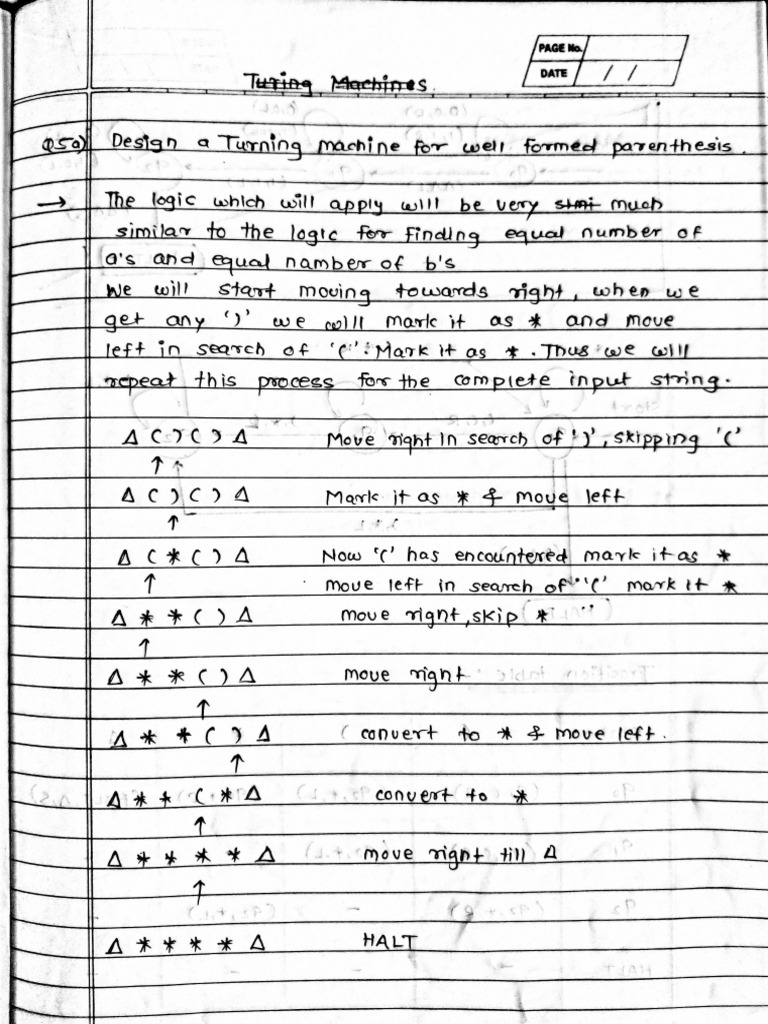 PAGE No.
DATE / /
Turing Machines.
Q5a) Design a Turning machine for well formed parenthesis.
→ The logic which will apply will be very simi much
similar to the logic for finding equal number of
a's and equal namber of b's
We will start moving towards right, when we
get any ')' we will mark it as * and move
left in search of '('. Mark it as *. Thus we will
repeat this process for the complete input string.
Δ ( ) ( ) Δ Move right in search of ')', skipping '('
↑
Δ ( ) ( ) Δ Mark it as * & move left
↑
Δ ( * ( ) Δ Now '(' has encountered mark it as *
↑ move left in search of '(' mark it *
Δ * * ( ) Δ move right, skip *
↑
Δ * * ( ) Δ move right
↑
Δ * * ( ) Δ ( convert to * & move left.
↑
Δ * * ( * Δ convert to *
↑
Δ * * * * Δ move right till Δ
↑
Δ * * * * Δ HALT